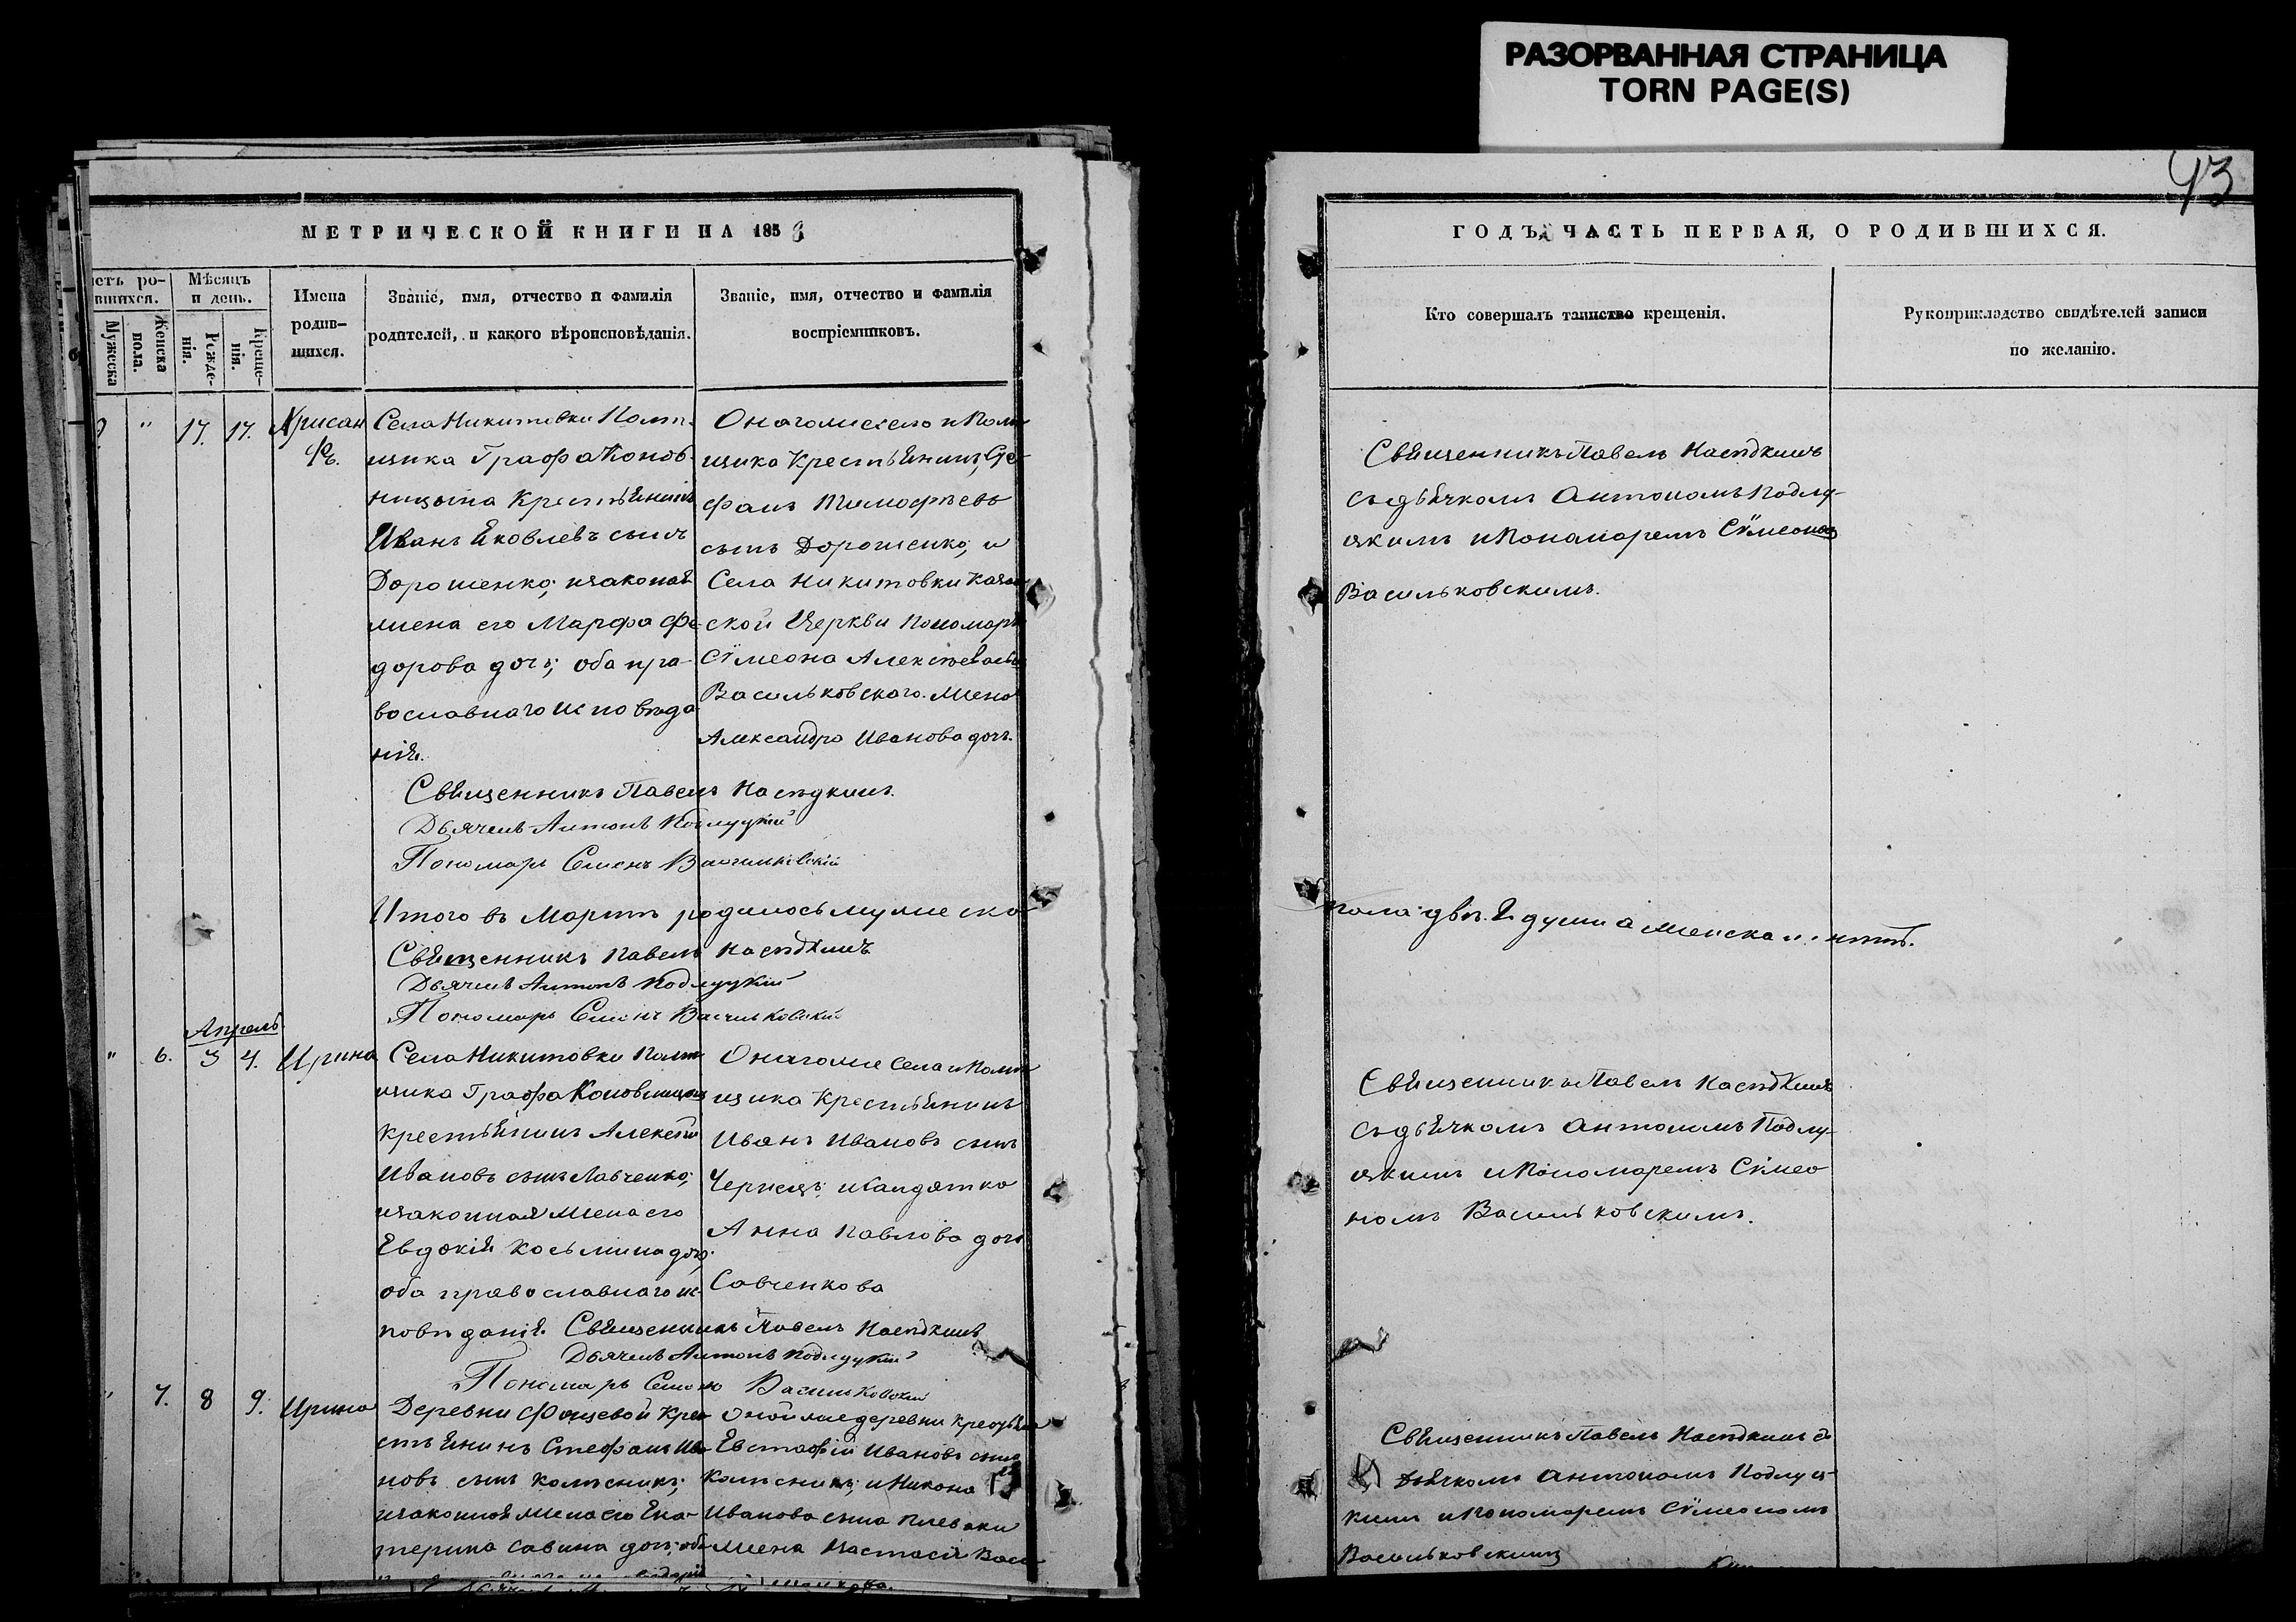 РАЗОРВАННАЯ СТРАНИЦА
TORN PAGE(S)
43
МЕТРИЧЕСКОЙ КНИГИ НА 185
етъ ро-
вшихся.
Мужеска
Женска
пола.
Мѣсяцъ
и день.
Рожде-
нія.
Креще-
нія.
Имена
родив-
шихся.
Званіе, имя, отчество и фамилія
родителей, и какого вѣроисповѣданія.
Званіе, имя, отчество и фамилія
воспріемниковъ.
" 17. 17. Хрисан
фъ.
Села Никитовки Помѣ-
щика Графа Конов-
ницына Крестьянинъ
Иванъ Яковлевъ сынъ
Дорошенко; изаконая
жена его Марфа Фе-
дорова дочь; оба пра-
вославнаго исповѣда
нія.
Онагоже села и Помѣ
щика Крестьянинъ, Сте-
фанъ Тимофѣевъ
сынъ Дорошенко, и
Села Никитовки Казан
ской Церкви Пономаря
Сѵмеона Алексѣева
Васильковскаго. Жена
Александра Иванова дочь.
Священникъ Павелъ Насѣдкинъ.
Дьячекъ Антонъ Подлуцкій
Пономарь Семенъ Васильковскій
Итого въ Мартѣ родилось мужеска
Священникъ Павелъ Насѣдкинъ
Дьячекъ Антонъ Подлуцкій
Пономарь Семенъ Васильковскій
Апрель
" 6. 3 4. Ирина
Села Никитовки Помѣ
щика Графа Коновницына
Крестьянинъ Алексѣй
Ивановъ сынъ Савченко;
изаконная Жена его
Евдокія Косьмина дочь;
оба православнаго ис
повѣданія.
Онагоже Села и Помѣ
щика Крестьянинъ
Иванъ Ивановъ сынъ
Чернецъ;
Анна Павлова дочь
Савченкова
Священникъ Павелъ Насѣдкинъ
Дьячекъ Антонъ Подлуцкій
Пономарь Семенъ Васильковскій
" 7. 8 9. Ирина
Деревни Фощевой Кре
стьянинъ Стефанъ Ива
новъ сынъ Колѣсникъ;
изаконная жена его Ека-
терина Савина дочь; оба
Оной же деревни Крестьян
Евстафій Ивановъ сынъ
Колѣсникъ; и Никона
Иванова сына Плеваки
жена Настасія Васи
ГОДЪ, ЧАСТЬ ПЕРВАЯ, О РОДИВШИХСЯ.
Кто совершалъ таинство крещенія.
Рукоприкладство свидѣтелей записи
по желанію.
Священникъ Павелъ Насѣдкинъ
съ дьячкомъ Антономъ Подлу-
цкимъ и Пономаремъ Сѵмеономъ
Васильковскимъ.
пола двѣ. 2. души а женска н. нѣтъ.
Священникъ Павелъ Насѣдкинъ
съ дьячкомъ Антономъ Подлу-
цкимъ и Пономаремъ Сѵмео
номъ Васильковскимъ.
Священникъ Павелъ Насѣдкинъ съ
дьячкомъ Антономъ Подлуц-
кимъ и Пономаремъ Сѵмеономъ
Васильковскимъ